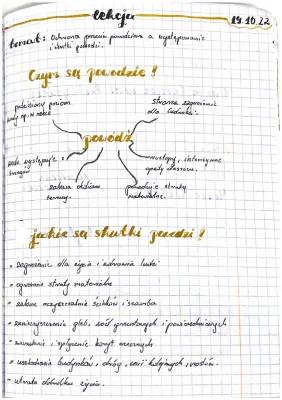 lekcja
19.10.22
temat: Ochrona przeciwpowodziowa a występowanie
i skutki powodzi.
Czym są powodzie!
podniesiony poziom
wody np. w rzece
stwarza zagrożenie
dla ludności.
powódź
woda występuje z
brzegów
następuje, intensywne
opady deszczu.
zalewa okoliczne
tereny.
powoduje straty
materialne.
jakie są skutki powodzi!
• zagrożenie dla życia i zdrowia ludzi
• ogromne straty materialne
• zalane oczyszczalnie ścieków i szamba
• zanieczyszczenie gleb, wód gruntowych i powierzchniowych
• zamulenie i spłycenie koryt rzecznych.
• uszkodzenia budynków, dróg, linii kolejowych, mostów.
• utrata dobytku życia.